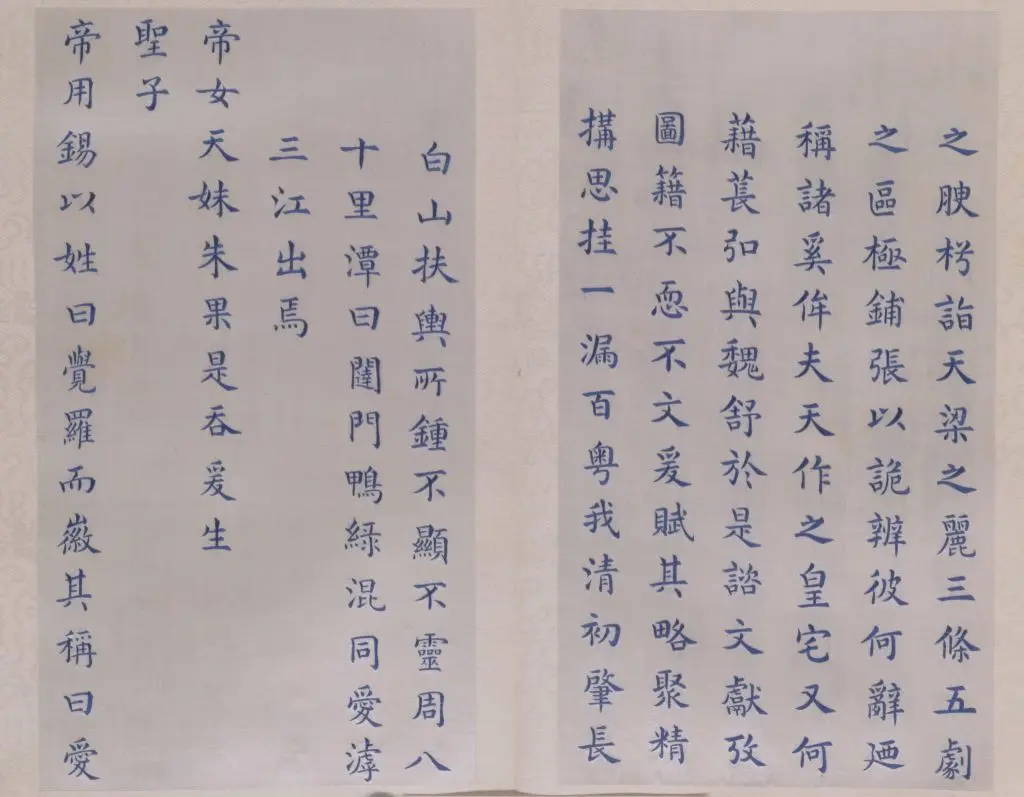 之腴枍詣天梁之麗三條五劇
之區極鋪張以詭辨彼何辭迺
稱諸奚侔夫天作之皇宅又何
藉萇弘與魏舒於是諮文獻攷
圖籍不恧不文爰賦其略聚精
搆思挂一漏百粵我清初肇長
白山扶輿所鍾不顯不靈周八
十里潭曰闥門鴨綠混同愛滹
三江出焉
帝女天妹朱果是吞爰生
聖子
帝用錫以姓曰覺羅而徽其稱曰愛